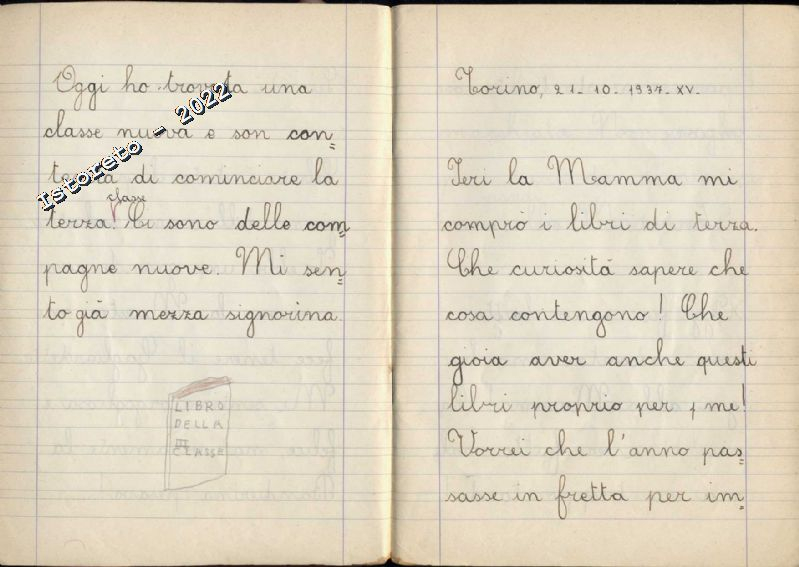 Oggi ho trovata una
classe nuova e son con=
tenta di cominciare la
classe
terza. Ci sono delle com=
pagne nuove. Mi sen=
to già mezza signorina.
LIBRO
DELLA
III
CLASSE
Istoreto - 2022
Torino, 21-10-1937-XV.
Ieri la Mamma mi
comprò i libri di terza.
Che curiosità sapere che
cosa contengono! Che
gioia aver anche questi
libri proprio per me!
Vorrei che l'anno pas=
sasse in fretta per im=